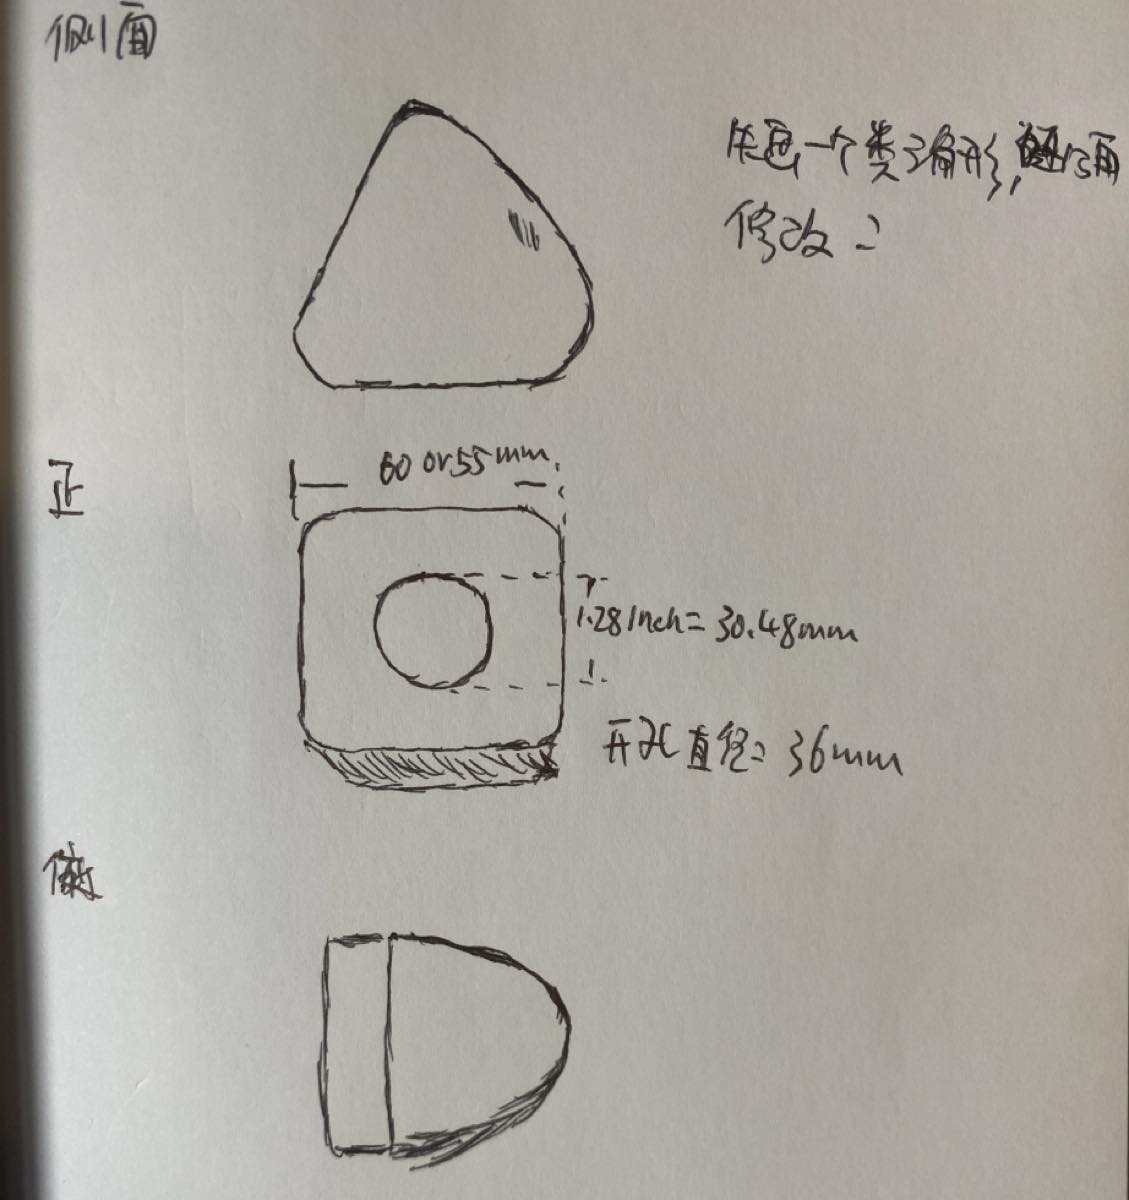 侧面
先画一个类三角形,
修改:
60 or 55mm.
正
1.28Inch=30.48mm
开孔直径=36mm
俯